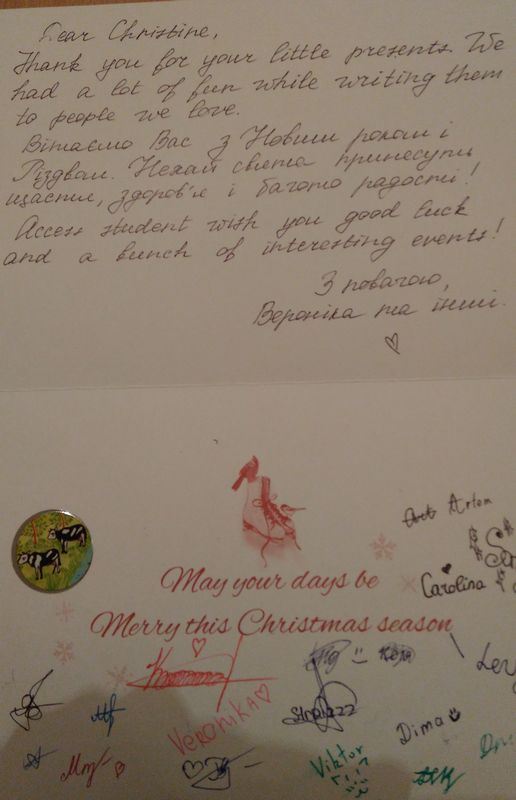 Dear Christine,
Thank you for your little presents. We
had a lot of fun while writing them
to people we love.
Вітаємо Вас з Новим роком і
Різдвом. Нехай свята принесуть
щастя, здоров'я і багато радості!
Access student wish you good luck
and a bunch of interesting events!
З повагою,
Вероніка та інші.
Artem
Carolina
May your days be
Merry this Christmas season
VERONIKA
Dima
Viktor